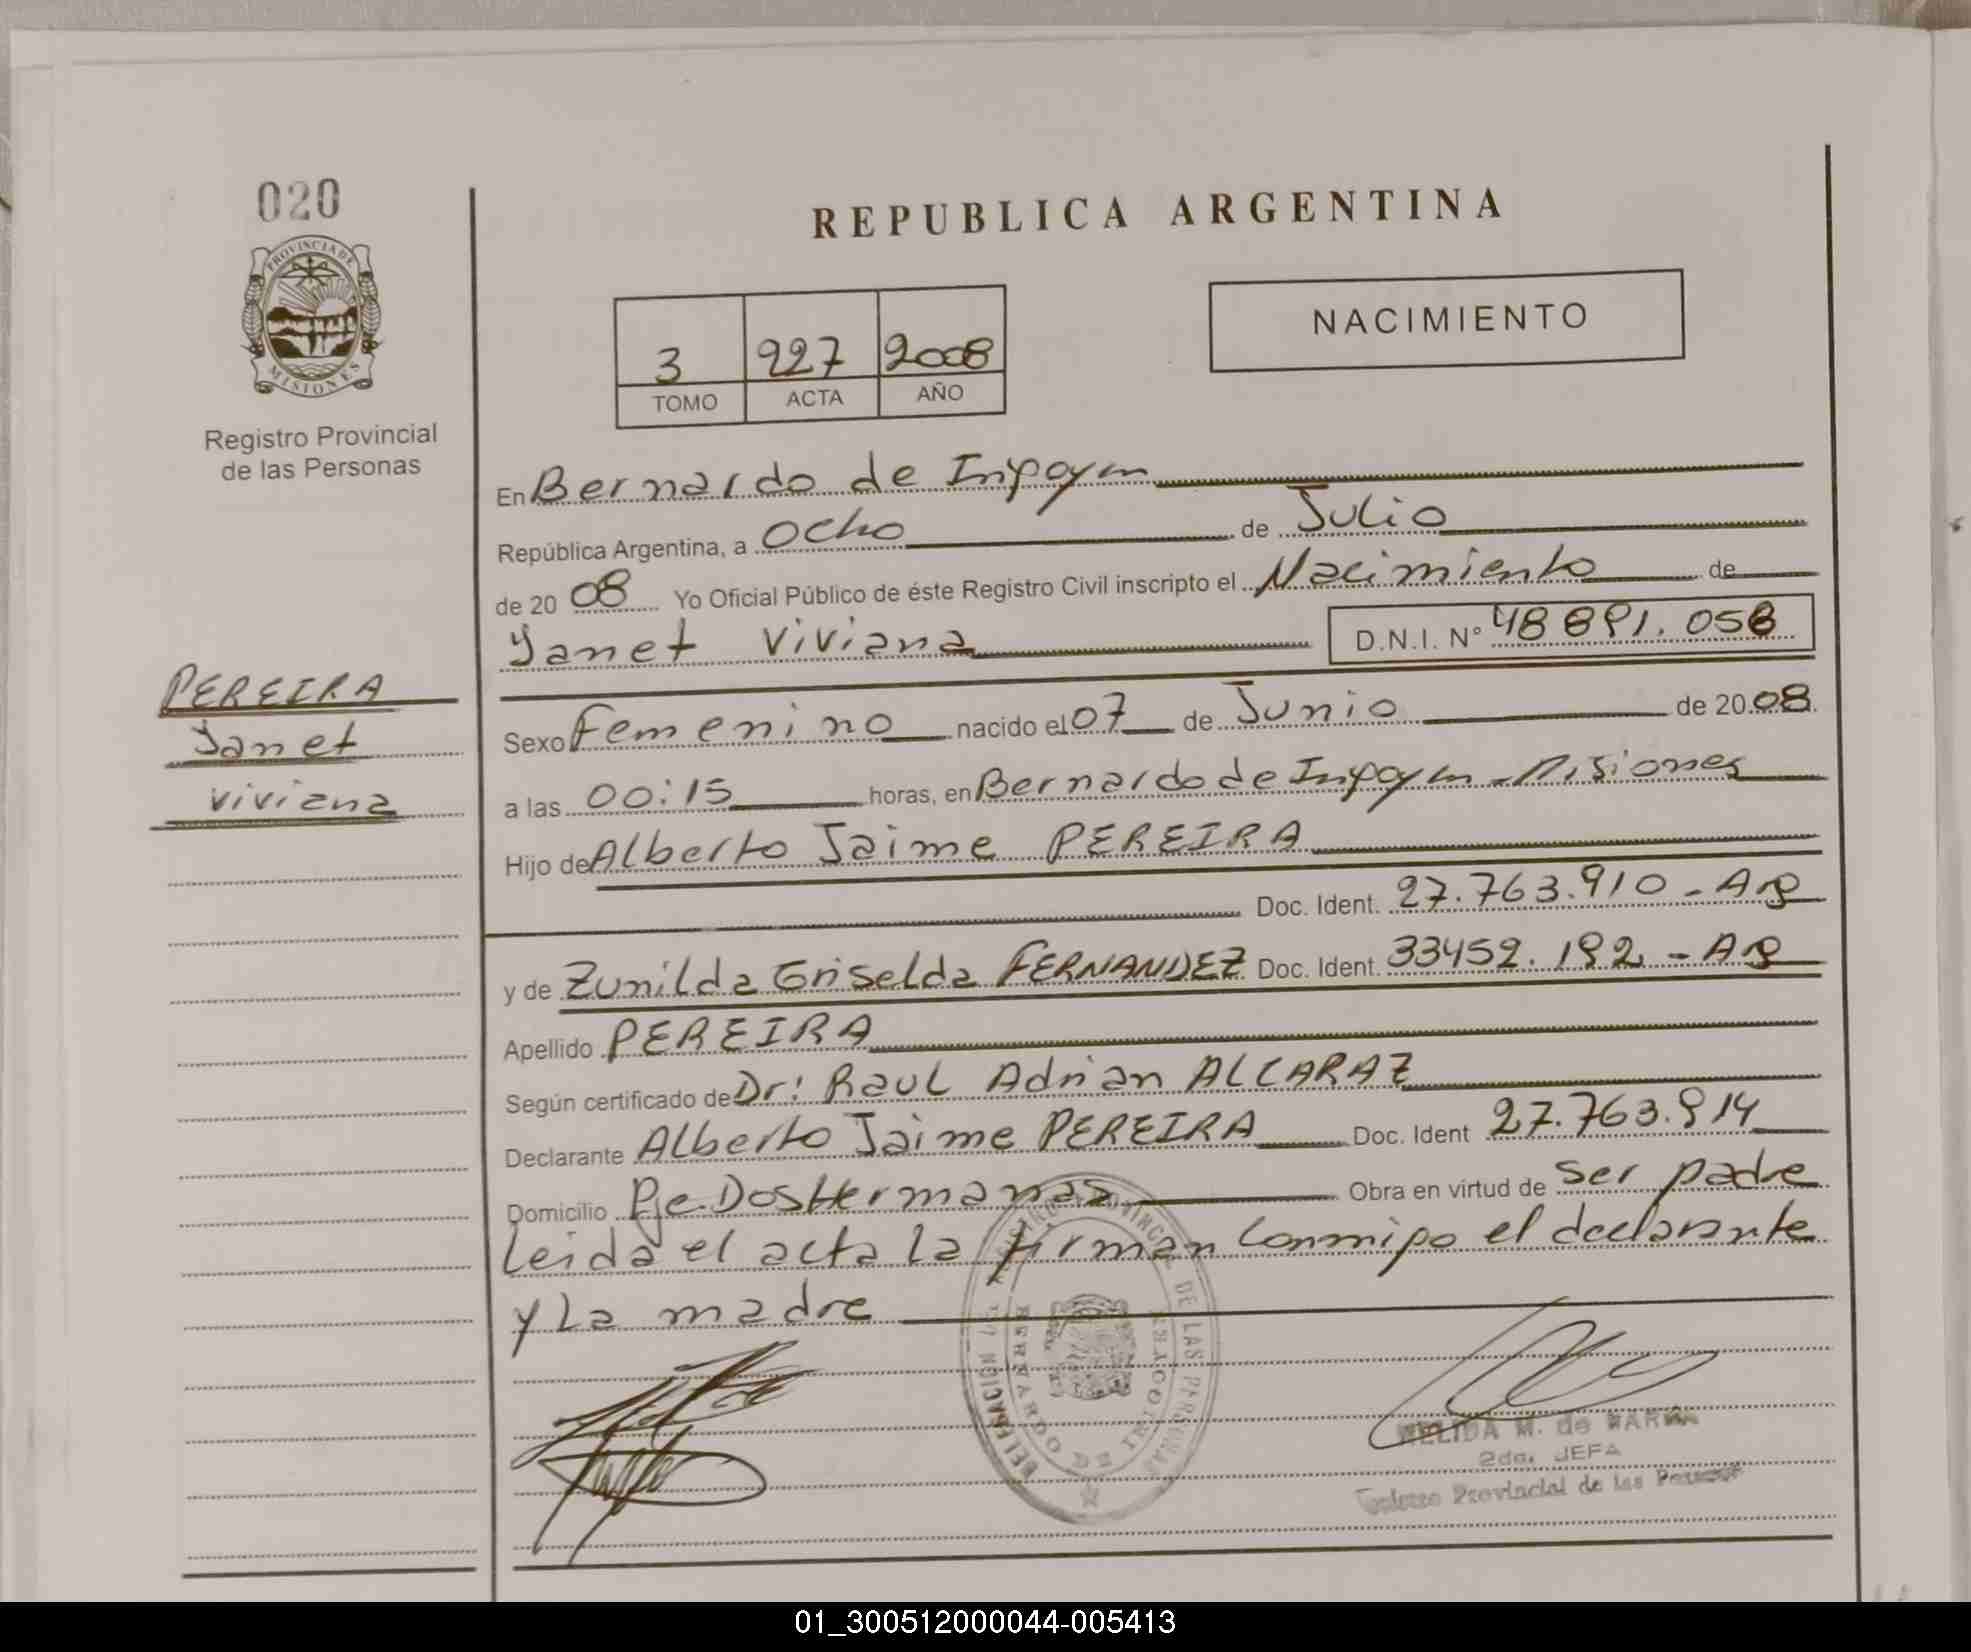 020
PROVINCIA DE
MISIONES
Registro Provincial
de las Personas
REPUBLICA ARGENTINA
3 227 2008
TOMO ACTA AÑO
NACIMIENTO
En Bernardo de Irigoyen
República Argentina, a Ocho de Julio
de 20 08 Yo Oficial Público de éste Registro Civil inscripto el Nacimiento de
Yanet Viviana D.N.I. Nº 48 891.058
PEREIRA
Yanet
Viviana
Sexo Femenino nacido el 07 de Junio de 20 08
a las 00:15 horas, en Bernardo de Irigoyen - Misiones
Hijo de Alberto Jaime PEREIRA
Doc. Ident. 27.763.910 - Arg
y de Zunilda Griselda FERNANDEZ Doc. Ident. 33452.192 - Arg
Apellido PEREIRA
Según certificado de Dr: Raul Adrian ALCARAZ
Declarante Alberto Jaime PEREIRA Doc. Ident 27.763.914
Domicilio Pje. Dos Hermanas Obra en virtud de ser padre
Leida el acta la firman conmigo el declarante
y La madre
DE LAS PERSONAS
DELEGACION
BERNARDO DE
NELIDA M. de
2da. JEFA
Provincial de las
01_300512000044-005413